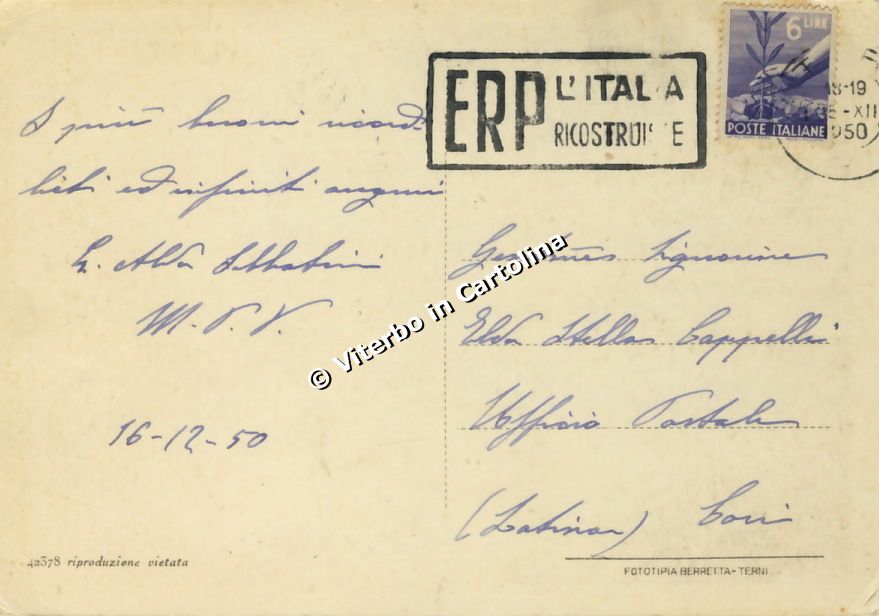 I più buoni ricordi
lieti ed infiniti auguri
S. Alda Sabbatini
M. P. V.
16-12-50
42378 riproduzione vietata
ERP L'ITALIA
RICOSTRUISCE
6 LIRE
POSTE ITALIANE
18-19
-XII
1950
Signorine
Elda Stella Cappelli
Ufficio Postale
(Latina) Cori
FOTOTIPIA BERRETTA-TERNI
© Viterbo in Cartolina